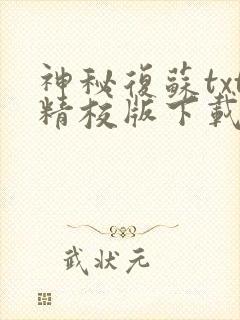 神秘復蘇txt
精校版下載
武状元